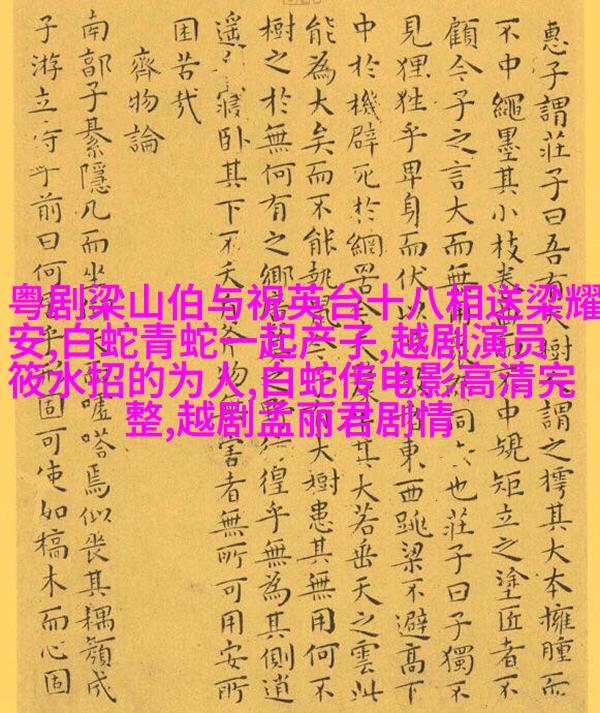 粤剧梁山伯与祝英台十八相送梁耀
安,白蛇青蛇一起产子,越剧演员
筱水招的为人,白蛇传电影高清完
整,越剧孟丽君剧情
惠子謂莊子曰吾有大樹謂之樗其大本擁腫而
不中繩墨其小枝中規矩立之塗匠者不
顧今子之言大而無用同也莊子曰子獨不
見狸狌乎卑身而伏東西跳梁不避高下
中於機辟死於網罟其大若垂天之雲此
能為大矣而不能執鼠大樹患其無用何不
樹之於無何有之鄉彷徨乎無為其側逍
遙寢卧其下不夭物害者無所可用安所
困苦哉
齊物論
南郭子綦隱几而坐噓嗒焉似喪其耦顏成
子游立侍乎前曰何形固可使如槁木而心固